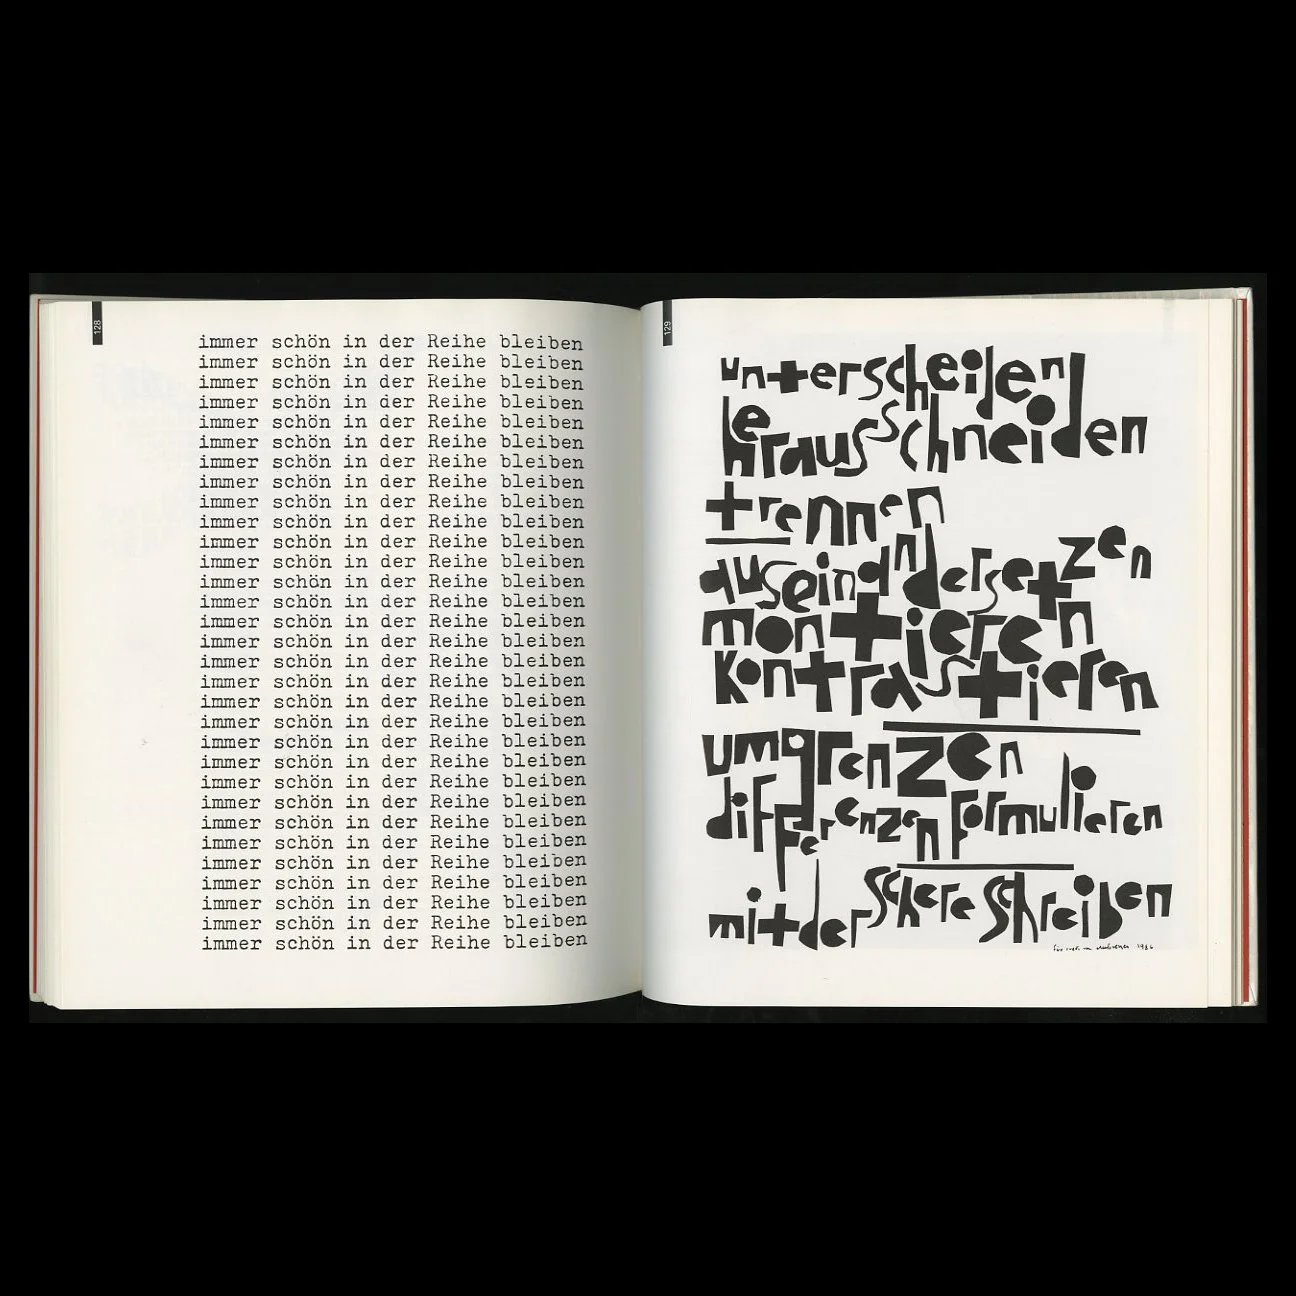 128
immer schön in der Reihe bleiben
immer schön in der Reihe bleiben
immer schön in der Reihe bleiben
immer schön in der Reihe bleiben
immer schön in der Reihe bleiben
immer schön in der Reihe bleiben
immer schön in der Reihe bleiben
immer schön in der Reihe bleiben
immer schön in der Reihe bleiben
immer schön in der Reihe bleiben
immer schön in der Reihe bleiben
immer schön in der Reihe bleiben
immer schön in der Reihe bleiben
immer schön in der Reihe bleiben
immer schön in der Reihe bleiben
immer schön in der Reihe bleiben
immer schön in der Reihe bleiben
immer schön in der Reihe bleiben
immer schön in der Reihe bleiben
immer schön in der Reihe bleiben
immer schön in der Reihe bleiben
immer schön in der Reihe bleiben
immer schön in der Reihe bleiben
immer schön in der Reihe bleiben
immer schön in der Reihe bleiben
immer schön in der Reihe bleiben
immer schön in der Reihe bleiben
immer schön in der Reihe bleiben
immer schön in der Reihe bleiben
immer schön in der Reihe bleiben
immer schön in der Reihe bleiben
129
unterscheiden
herausschneiden
trennen
auseinandersetzen
montieren
kontrastieren
umgrenzen
differenzen formulieren
mit der schere schreiben
für